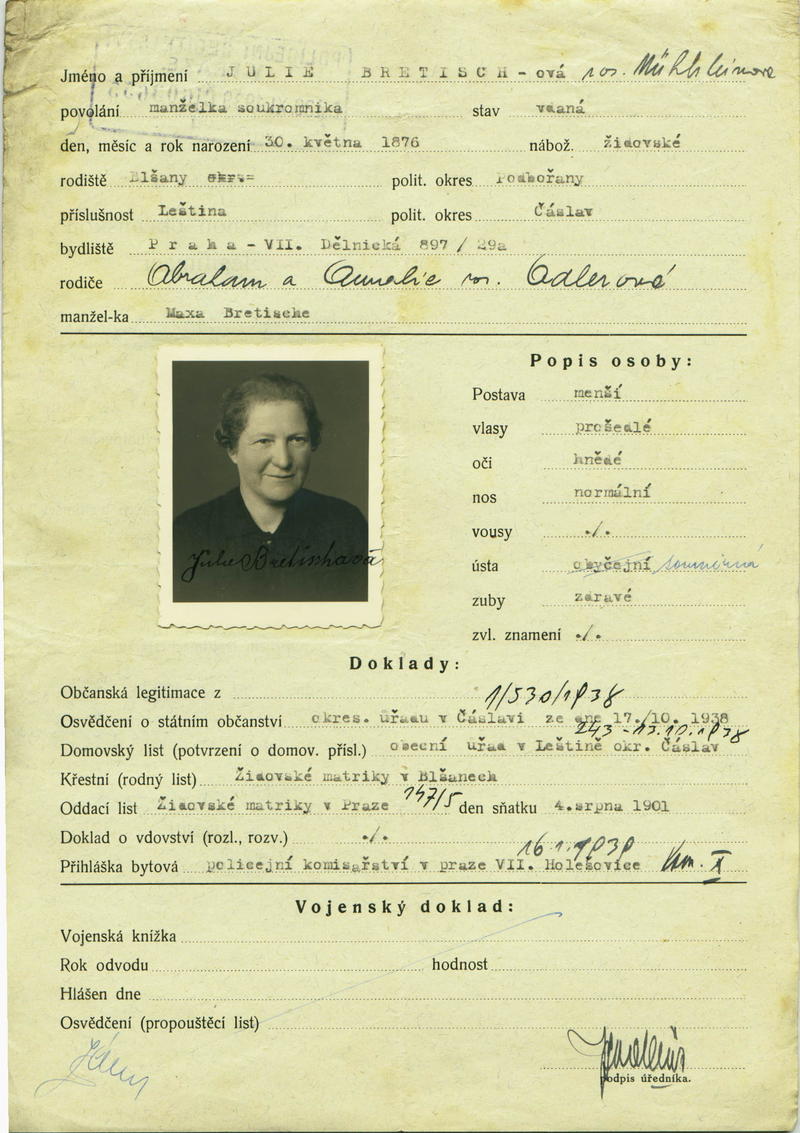 Jméno a příjmení JULIE BRETISCH-ová roz. Mühlsteinová
povolání manželka soukromníka stav vdaná
den, měsíc a rok narození 30. května 1876 nábož. židovské
rodiště Blšany okr.= polit. okres Podbořany
příslušnost Leština polit. okres Čáslav
bydliště Praha-VII. Dělnická 897 / 29a
rodiče Abraham a Aurelie roz. Adlerová
manžel-ka Maxa Bretische
Popis osoby:
Postava menší
vlasy prošedlé
oči hnědé
nos normální
vousy ./.
ústa obyčejní souměrná
zuby zdravé
zvl. znamení ./.
Julie Bretischová
Doklady:
Občanská legitimace z 1/530/1938
Osvědčení o státním občanství okres. úřadu v Čáslavi ze dne 17./10. 1938
Domovský list (potvrzení o domov. přísl.) obecní úřad v Leštině okr. Čáslav 243 -
Křestní (rodný list) Židovské matriky v Blšanech
Oddací list Židovské matriky v Praze 147/5 den sňatku 4.srpna 1901
Doklad o vdovství (rozl., rozv.) ./.
Přihláška bytová policejní komisařství v praze VII. Holešovice
Vojenský doklad:
Vojenská knížka
Rok odvodu hodnost
Hlášen dne
Osvědčení (propouštěcí list)
podpis úředníka.